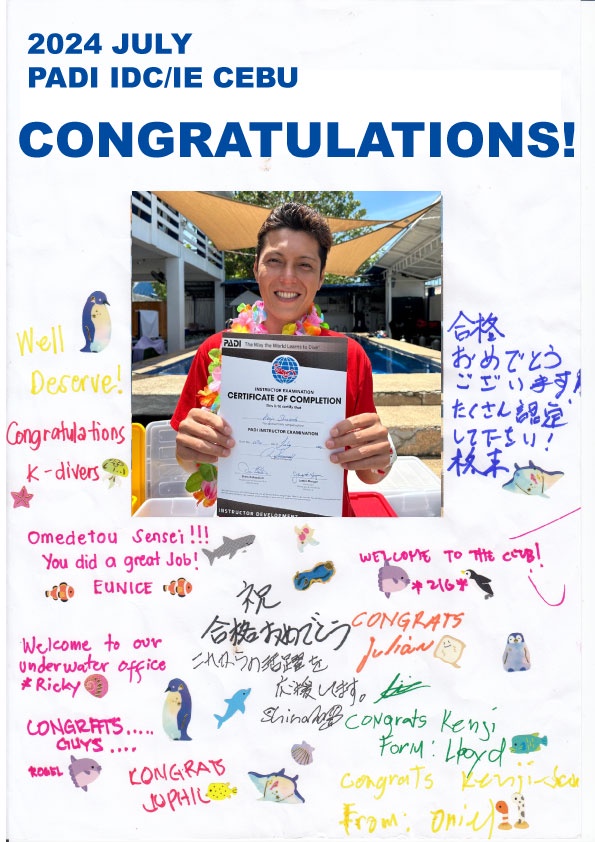 2024 JULY
PADI IDC/IE CEBU
CONGRATULATIONS!
Well
Deserve!
Congratulations
K-divers
合格
おめでとう
ございます
たくさん認定
して下さい!
PADI The Way the World Learns to Dive
INSTRUCTOR EXAMINATION
CERTIFICATE OF COMPLETION
This is to certify that
PADI INSTRUCTOR EXAMINATION
INSTRUCTOR DEVELOPMENT
Omedetou Sensei!!!
You did a great Job!
EUNICE
WELCOME TO THE CLUB!
*ZIG*
祝
合格おめでとう
これからの活躍を
応援します。
CONGRATS
Julian
Welcome to our
underwater office
*Ricky
CONGRATS.....
GUYS....
ROBEL
KONGRATS
JUPHIL
Congrats Kenji
Form: Lloyd
Congrats Kenji-San
From: Oniel